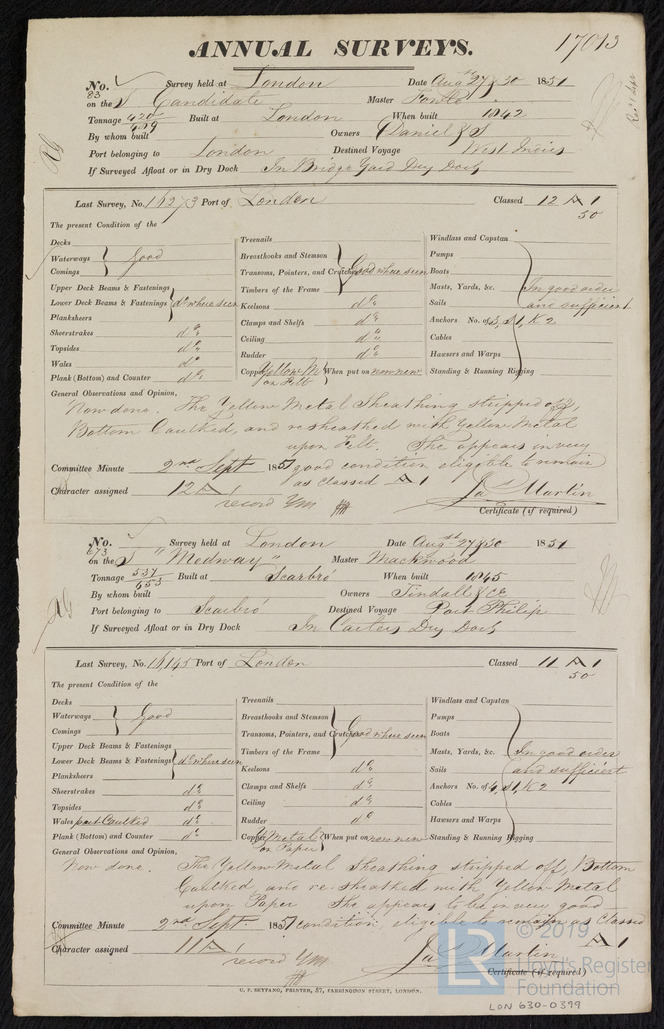 ANNUAL SURVEYS.
17013
No. 83 Survey held at London Date Augst 27 & 30 1851
on the S Candidate Master
Tonnage 420/409 Built at London When built 1842
By whom built Owners Daniel & S
Port belonging to London Destined Voyage West Indies
If Surveyed Afloat or in Dry Dock In Bridge Yard Dry Dock
Last Survey, No. 16273 Port of London Classed 12 A 1
50
The present Condition of the
Decks
Waterways Good
Comings
Upper Deck Beams & Fastenings
Lower Deck Beams & Fastenings do where seen
Planksheers
Sheerstrakes do
Topsides do
Wales do
Plank (Bottom) and Counter do
Treenails
Breasthooks and Stemson
Transoms, Pointers, and Crutches Good where seen
Timbers of the Frame
Keelsons do
Clamps and Shelfs do
Ceiling do
Rudder do
Copper Yellow M on Felt When put on now new
Windlass and Capstan
Pumps
Boats
Masts, Yards, &c. In good order
Sails and sufficient
Anchors No. of 3, S 1, K 2
Cables
Hawsers and Warps
Standing & Running Rigging
General Observations and Opinion,
Now done. The Yellow Metal Sheathing stripped off,
Bottom Caulked, and resheathed with Yellow Metal
upon Felt. She appears in very
Committee Minute 2nd Sept 1851 good condition eligible to remain
as classed A 1
Character assigned 12 A 1
record YM
Jas Martin
Certificate (if required)
No. 673 Survey held at London Date Augst 27 & 30 1851
on the S "Medway" Master Mackwood
Tonnage 537/653 Built at Scarbro When built 1845
By whom built Owners Tindall & Co
Port belonging to Scarbro Destined Voyage Port Philip
If Surveyed Afloat or in Dry Dock In Carters Dry Dock
Last Survey, No. 16145 Port of London Classed 11 A 1
50
The present Condition of the
Decks
Waterways Good
Comings
Upper Deck Beams & Fastenings
Lower Deck Beams & Fastenings do where seen
Planksheers
Sheerstrakes do
Topsides do
Wales part Caulked do
Plank (Bottom) and Counter do
Treenails
Breasthooks and Stemson
Transoms, Pointers, and Crutches Good where seen
Timbers of the Frame
Keelsons do
Clamps and Shelfs do
Ceiling do
Rudder do
Copper Y Metal on Paper When put on now new
Windlass and Capstan
Pumps
Boats
Masts, Yards, &c. In good order
Sails and sufficient
Anchors No. of 4, S 1, K 2
Cables
Hawsers and Warps
Standing & Running Rigging
General Observations and Opinion,
Now done. The Yellow Metal Sheathing stripped off, Bottom
Caulked, and re-sheathed with Yellow Metal
upon Paper She appears to be in very good
Committee Minute 2nd Sept. 1851 condition, eligible to remain as Classed
A 1
Character assigned 11 A 1
record YM
Jas Martin
Certificate (if required)
U. F. SEYFANG, PRINTER, 57, FARRINGDON STREET, LONDON.
LR © 2019
Lloyd's Register
Foundation
LON 630-0399